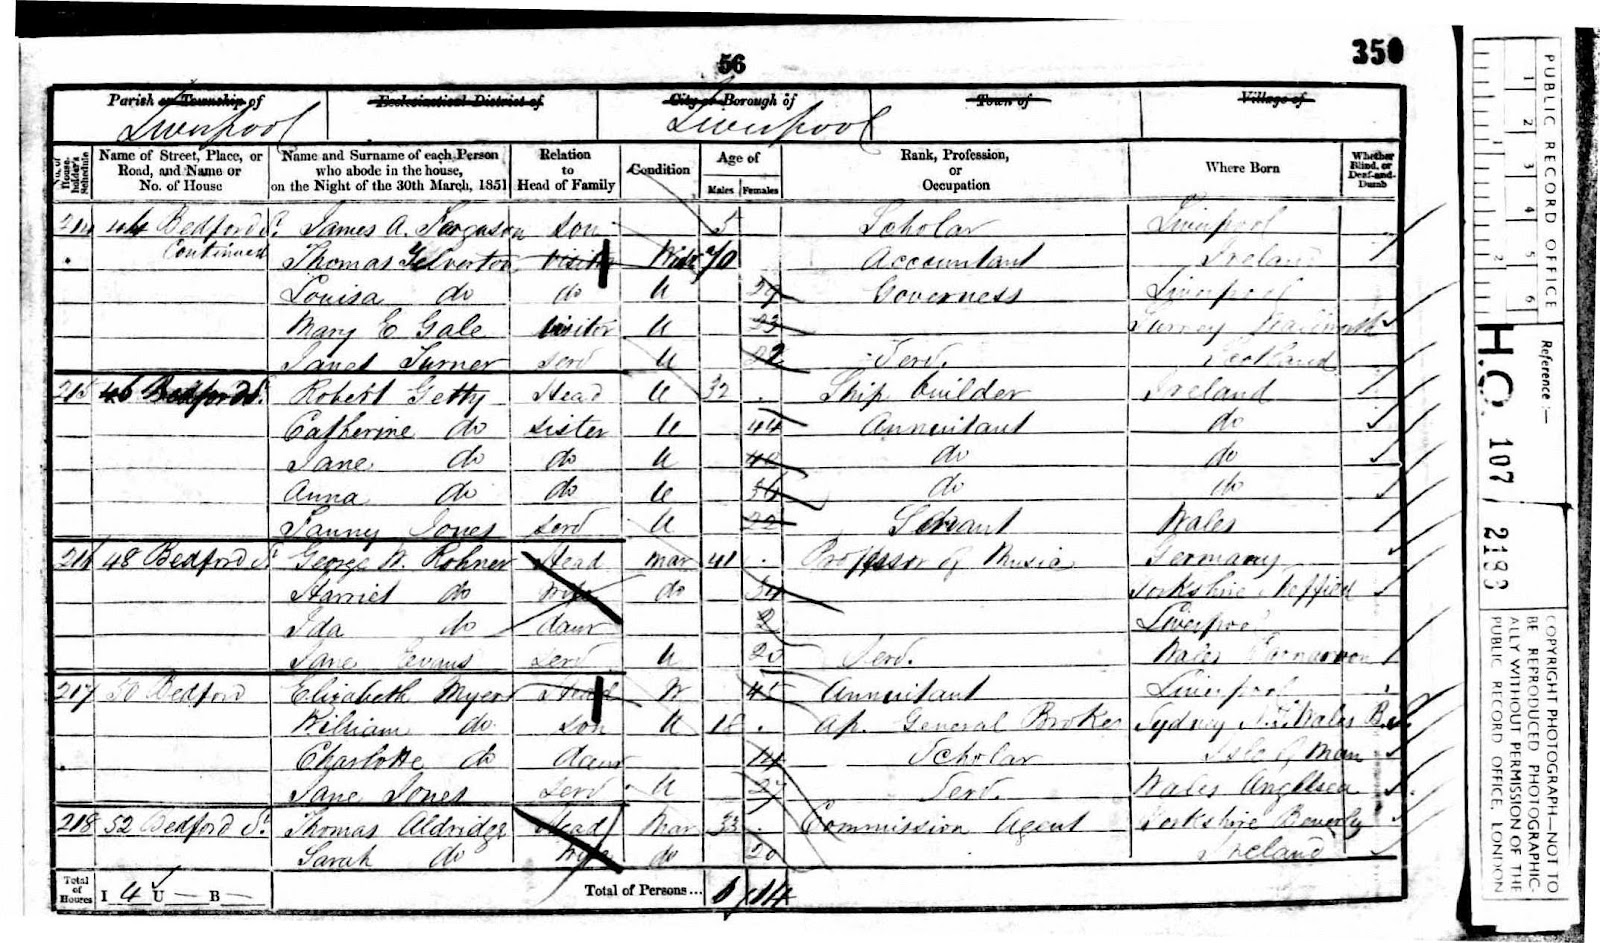 350
56
Parish or Township of
Ecclesiastical District of
City or Borough of
Town of
Village of
Liverpool
Liverpool
No. of House-holder's Schedule
Name of Street, Place, or Road, and Name or No. of House
Name and Surname of each Person who abode in the house, on the Night of the 30th March, 1851
Relation to Head of Family
Condition
Age of
Males
Females
Rank, Profession, or Occupation
Where Born
Whether Blind, or Deaf-and-Dumb
214 44 Bedford St. James A. Ferguson Son 5 Scholar Liverpool
Continued Thomas Yelverton Visitor Widr 70 Accountant Ireland
Louisa do do U 29 Governess Liverpool
Mary E Gale Visitor U 23 Surrey
Janet Turner Serv U 22 Serv. Scotland
215 46 Bedford St. Robert Getty Head U 32 Ship builder Ireland
Catherine do Sister U 44 Annuitant do
Jane do do U 40 do do
Anna do do U 36 do do
Fanny Jones Serv U 22 Servant Wales
216 48 Bedford St George W. Rohner Head Mar 41 Professor of Music Germany
Harriet do Wife do 34 Yorkshire Sheffield
Ida do daur 2 Liverpool
Jane Evans Serv U 25 Serv. Wales Carnarvon
217 50 Bedford Elizabeth Myers Head W 45 Annuitant Liverpool
William do Son U 18 Ap. General Broker Sydney N.S. Wales B.S.
Charlotte do daur 14 Scholar Isle of Man
Jane Jones Serv U 27 Serv. Wales Anglesea
218 52 Bedford St. Thomas Aldridge Head Mar 33 Commission Agent Yorkshire Beverly
Sarah do Wife do 20 Ireland
Total of Houses I 4 U — B —
Total of Persons... 6 14
PUBLIC RECORD OFFICE
1 2 3 4 5 6
1 2
Reference:—
H.O. 107 / 2183
COPYRIGHT PHOTOGRAPH—NOT TO
BE REPRODUCED PHOTOGRAPHIC-
ALLY WITHOUT PERMISSION OF THE
PUBLIC RECORD OFFICE, LONDON